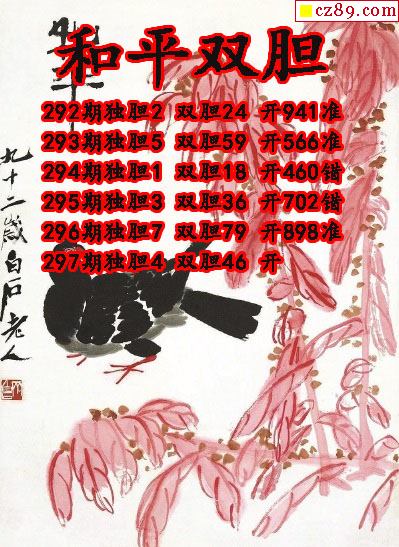 cz89.com
和平双胆
292期独胆2 双胆24 开941准
293期独胆5 双胆59 开566准
294期独胆1 双胆18 开460错
295期独胆3 双胆36 开702错
296期独胆7 双胆79 开898准
297期独胆4 双胆46 开
九十二岁白石老人